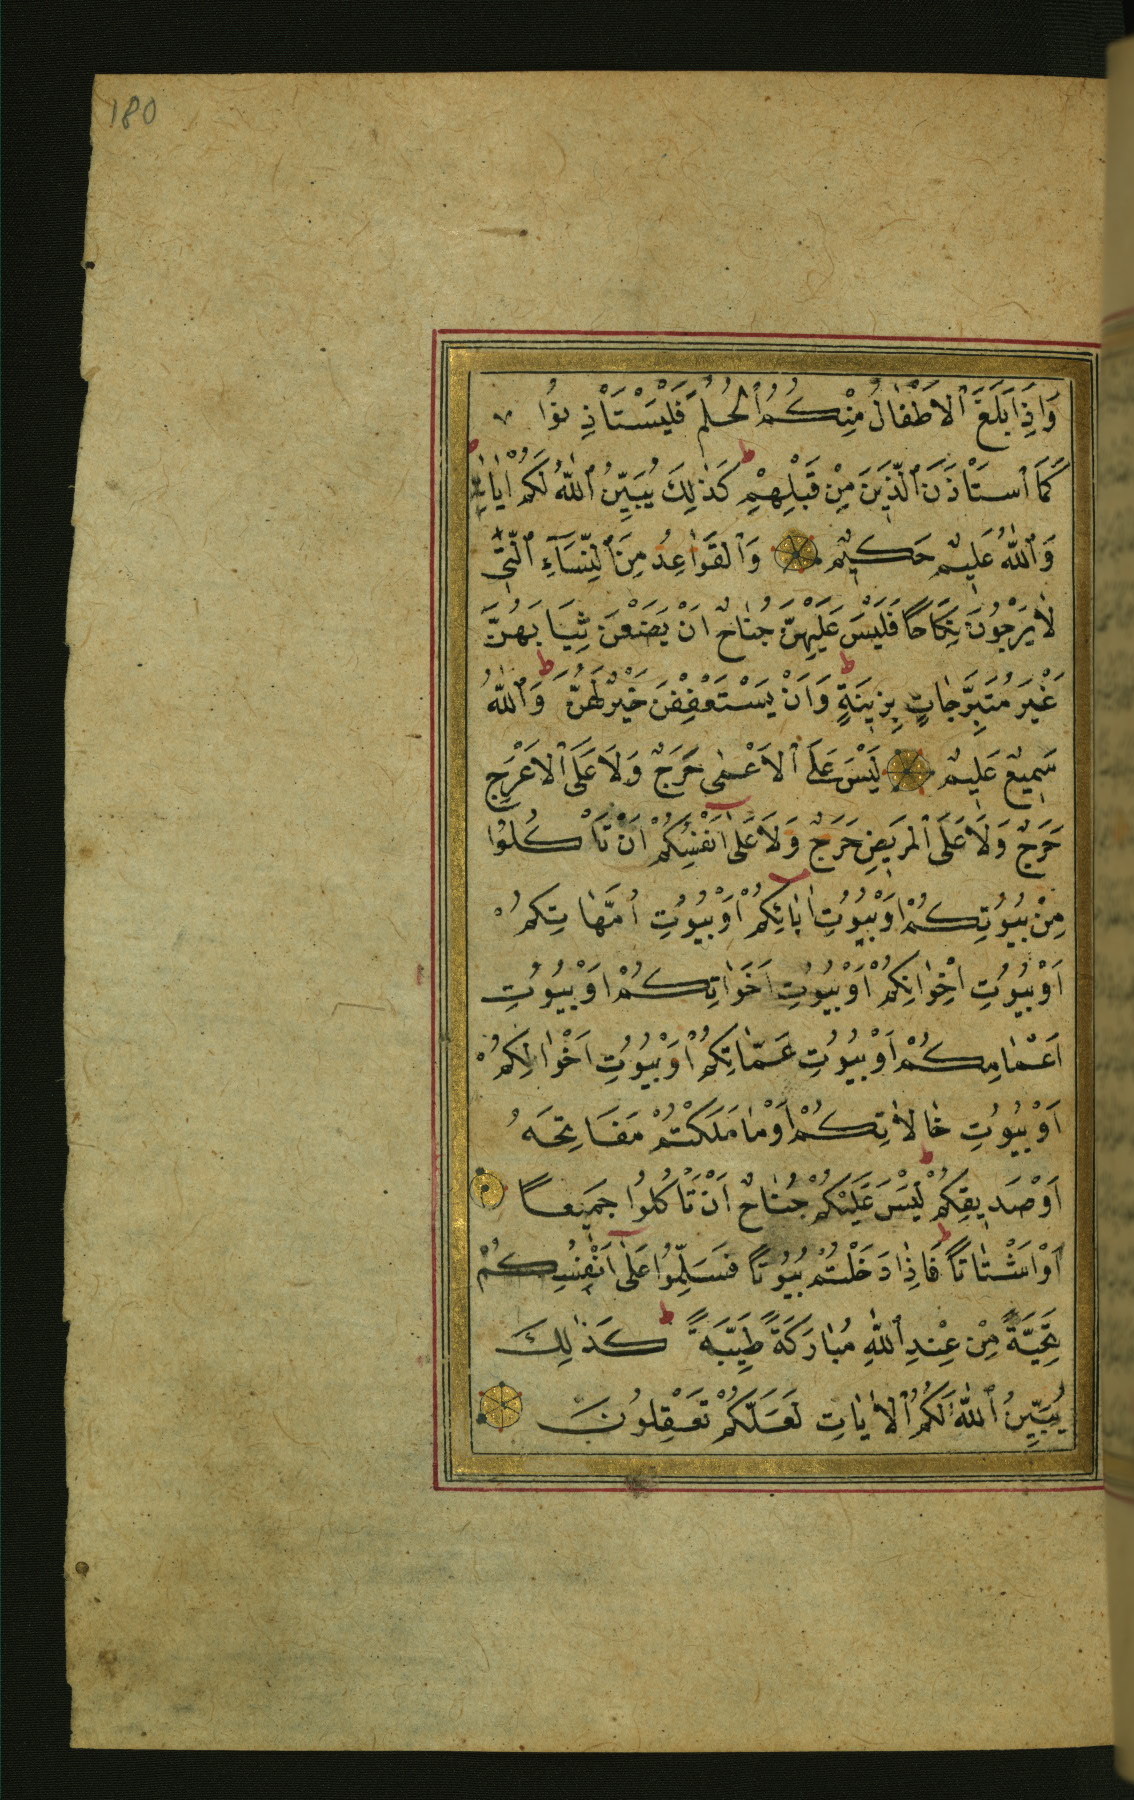 180
وَاِذَا بَلَغَ ٱلْاَطْفَالُ مِنْكُمُ ٱلْحُلُمَ فَلْيَسْتَاْذِنُوا
كَمَا ٱسْتَاْذَنَ ٱلَّذِينَ مِنْ قَبْلِهِمْ ط كَذٰلِكَ يُبَيِّنُ ٱللّٰهُ لَكُمْ اٰيَاتِهٖ ط
وَٱللّٰهُ عَلِيمٌ حَكِيمٌ وَٱلْقَوَاعِدُ مِنَ ٱلنِّسَآءِ ٱلّٰتِى
لَا يَرْجُونَ نِكَاحًا فَلَيْسَ عَلَيْهِنَّ جُنَاحٌ اَنْ يَضَعْنَ ثِيَابَهُنَّ
غَيْرَ مُتَبَرِّجَاتٍ بِزِينَةٍ ط وَاَنْ يَسْتَعْفِفْنَ خَيْرٌ لَهُنَّ ط وَٱللّٰهُ
سَمِيعٌ عَلِيمٌ لَيْسَ عَلَى ٱلْاَعْمٰى حَرَجٌ وَلَا عَلَى ٱلْاَعْرَجِ
حَرَجٌ وَلَا عَلَى ٱلْمَرِيضِ حَرَجٌ وَلَا عَلٰى اَنْفُسِكُمْ اَنْ تَاْكُلُوْا
مِنْ بُيُوتِكُمْ اَوْ بُيُوتِ اٰبَائِكُمْ اَوْ بُيُوتِ اُمَّهَاتِكُمْ
اَوْ بُيُوتِ اِخْوَانِكُمْ اَوْ بُيُوتِ اَخَوَاتِكُمْ اَوْ بُيُوتِ
اَعْمَامِكُمْ اَوْ بُيُوتِ عَمَّاتِكُمْ اَوْ بُيُوتِ اَخْوَالِكُمْ
اَوْ بُيُوتِ خَالَاتِكُمْ اَوْ مَا مَلَكْتُمْ مَفَاتِحَهُ
اَوْ صَدِيقِكُمْ ط لَيْسَ عَلَيْكُمْ جُنَاحٌ اَنْ تَاْكُلُوا جَمِيعًا
اَوْ اَشْتَاتًا ط فَاِذَا دَخَلْتُمْ بُيُوتًا فَسَلِّمُوا عَلٰى اَنْفُسِكُمْ
تَحِيَّةً مِنْ عِنْدِ ٱللّٰهِ مُبَارَكَةً طَيِّبَةً ط كَذٰلِكَ
يُبَيِّنُ ٱللّٰهُ لَكُمُ ٱلْاٰيَاتِ لَعَلَّكُمْ تَعْقِلُونَ